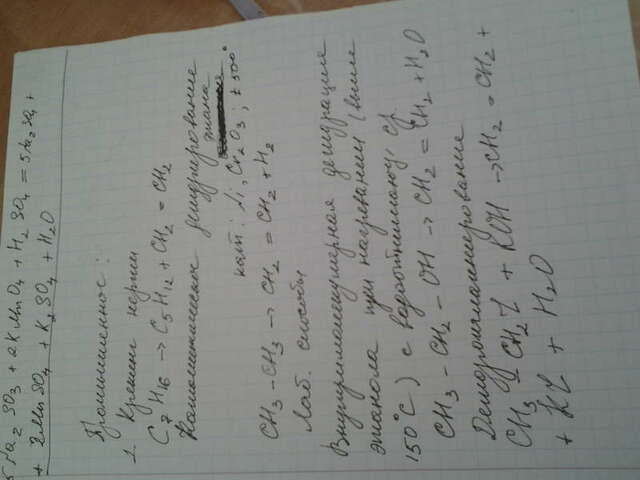 5Na2SO3 + 2KMnO4 + H2SO4 = 5Na2SO4 +
+ 2MnSO4 + K2SO4 + H2O
Промышленное:
1. Крекинг нефти
C7H16 → C5H12 + CH2 = CH2
Каталитическое дегидрирование
этана
кат: Ni, Cr2O3; t 500°
CH3 – CH3 → CH2 = CH2 + H2
Лаб. способы
Внутримолекулярная дегидрация
этанола при нагревании (выше
150°C) с водоотнимающ. ср.
CH3 – CH2 – OH → CH2 = CH2 + H2O
Дегидрогалогенирование
CH3 CH2 + KOH → CH2 = CH2 +
+ + H2O